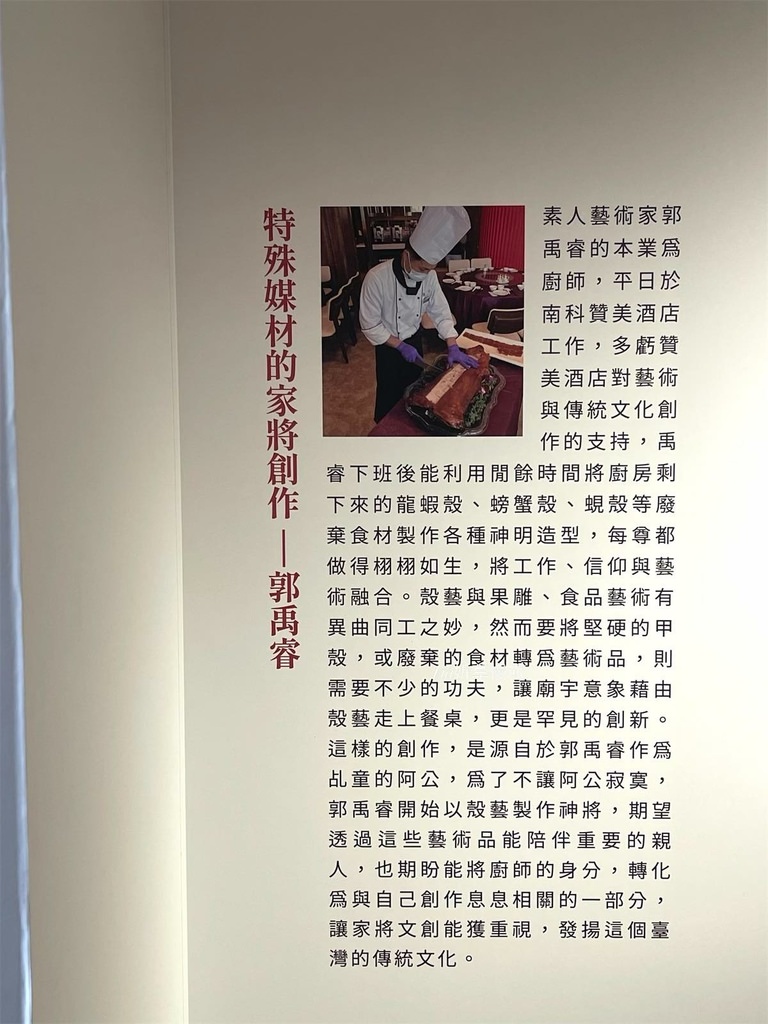 特殊媒材的家將創作 — 郭禹睿
素人藝術家郭
禹睿的本業為
廚師，平日於
南科贊美酒店
工作，多虧贊
美酒店對藝術
與傳統文化創
作的支持，禹
睿下班後能利用閒餘時間將廚房剩
下來的龍蝦殼、螃蟹殼、蜆殼等廢
棄食材製作各種神明造型，每尊都
做得栩栩如生，將工作、信仰與藝
術融合。殼藝與果雕、食品藝術有
異曲同工之妙，然而要將堅硬的甲
殼，或廢棄的食材轉為藝術品，則
需要不少的功夫，讓廟宇意象藉由
殼藝走上餐桌，更是罕見的創新。
這樣的創作，是源自於郭禹睿作為
乩童的阿公，為了不讓阿公寂寞，
郭禹睿開始以殼藝製作神將，期望
透過這些藝術品能陪伴重要的親
人，也期盼能將廚師的身分，轉化
為與自己創作息息相關的一部分，
讓家將文創能獲重視，發揚這個臺
灣的傳統文化。